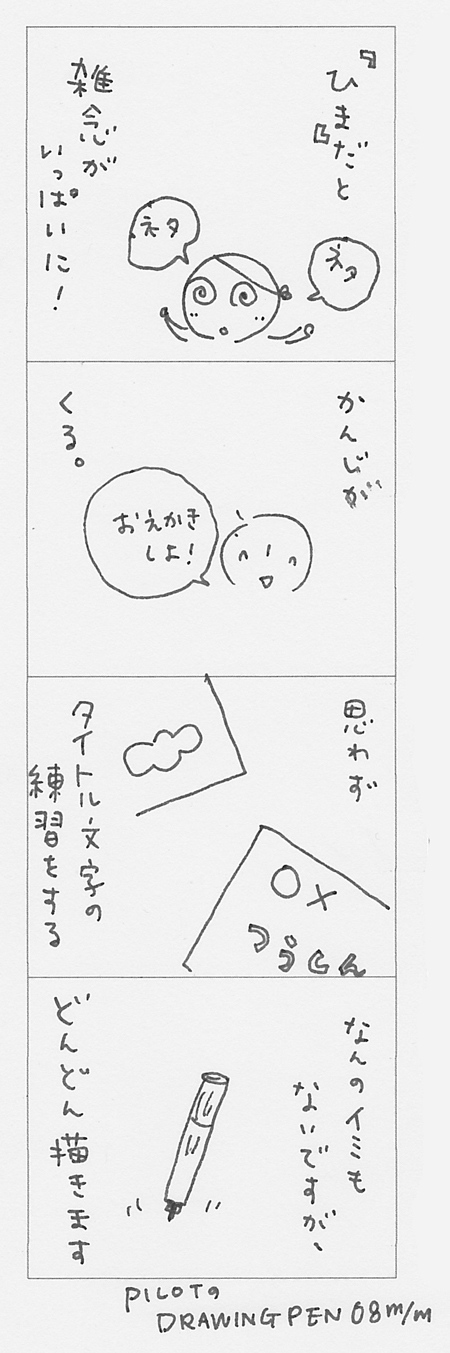 『ひま』だと
ネタ
ネタ
雑念が
いっぱいに！
かんじが
おえかき
しよ！
くる。
思わず
○×
つうしん
タイトル文字の
練習をする
なんのイミも
ないですが、
どんどん描きます
PILOTの
DRAWING PEN 08m/m